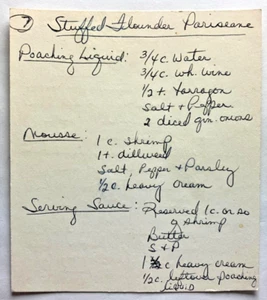 7 Stuffed Flounder Pariseane
Poaching Liquid: 3/4 c. Water
3/4 c. wh. wine
1/2 t. Tarragon
Salt + Pepper
2 diced grn. onions
Mousse:
1 c. shrimp
1 t. dillweed
Salt, Pepper & Parsley
1/2 c. heavy cream
Serving Sauce: Reserved 1 c. or so
of shrimp
Butter
S & P
1 c heavy cream
1/2 c. leftover poaching
liquid